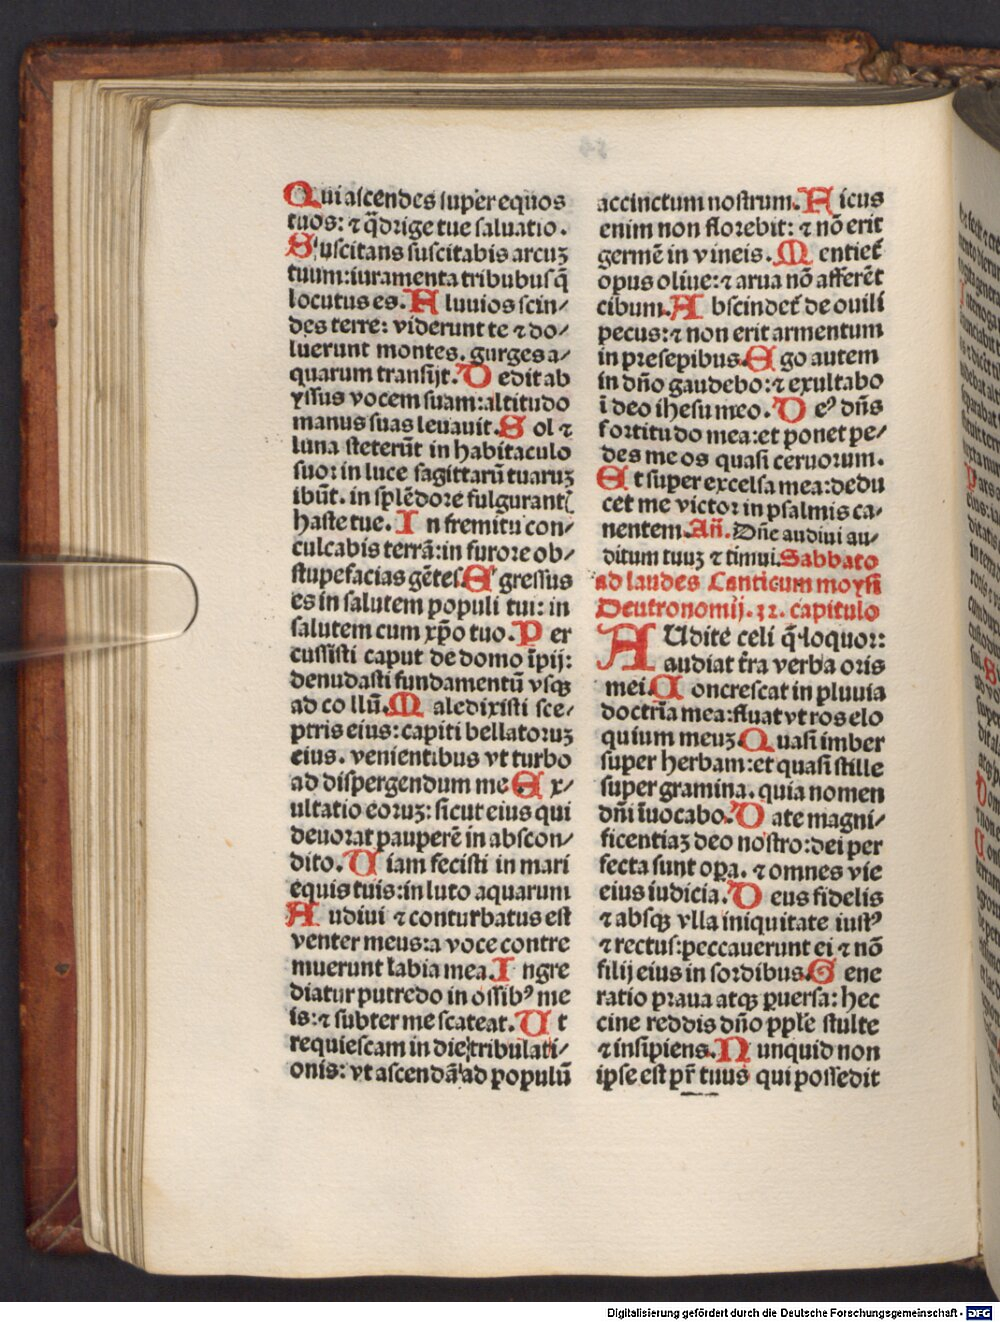 Qui ascendes super equos
tuos: ⁊ q̄drige tue saluatio.
Suscitans suscitabis arcuʒ
tuum: iuramenta tribubus q̄
locutus es. Aluuios scin/
des terre: viderunt te ⁊ do/
luerunt montes. gurges a/
quarum transijt. Dedit ab
yssus vocem suam: altitudo
manus suas leuauit. Sol ⁊
luna steterūt in habitaculo
suo: in luce sagittarū tuaruʒ
ibūt. in splēdore fulgurantꝭ
haste tue. In fremitu con/
culcabis terrā: in furore ob/
stupefacias gētes. Egressus
es in salutem populi tui: in
salutem cum xp̄o tuo. Per
cussisti caput de domo īpij:
denudasti fundamentū vsqꝫ
ad collū. Maledixisti sce/
ptris eius: capiti bellatoruʒ
eius. venientibus vt turbo
ad dispergendum me. Ex/
ultatio eoruʒ: sicut eius qui
deuorat pauperē in abscon/
dito. Uiam fecisti in mari
equis tuis: in luto aquarum
Audiui ⁊ conturbatus est
venter meus: a voce contre
muerunt labia mea. Ingre
diatur putredo in ossibꝰ me
is: ⁊ subter me scateat. Ut
requiescam in die tribulati/
onis: vt ascendā ad populū
accinctum nostrum. Ficus
enim non florebit: ⁊ nō erit
germē in vineis. Mentiet᷑
opus oliue: ⁊ arua nō afferēt
cibum. Abscindet᷑ de ouili
pecus: ⁊ non erit armentum
in presepibus. Ego autem
in dn̄o gaudebo: ⁊ exultabo
ī deo ihesu meo. Deꝰ dn̄s
fortitudo mea: et ponet pe/
des meos quasi ceruorum.
Et super excelsa mea: dedu
cet me victor in psalmis ca/
nentem. Añ. Dn̄e audiui au/
ditum tuuʒ ⁊ timui. Sabbato
ad laudes Canticum moysi
Deutronomij. 32. capitulo
AUdite celi q̄ loquor:
audiat t̄ra verba oris
mei. Concrescat in pluuia
doctrīa mea: fluat vt ros elo
quium meuʒ. Quasi imber
super herbam: et quasi stille
super gramina. quia nomen
dn̄i īuocabo. Date magni/
ficentiaʒ deo nostro: dei per
fecta sunt oꝑa. ⁊ omnes vie
eius iudicia. Deus fidelis
⁊ absqꝫ vlla iniquitate iustꝰ
⁊ rectus: peccauerunt ei ⁊ nō
filij eius in sordibus. Gene
ratio praua atqꝫ ꝑuersa: hec
cine reddis dn̄o pple stulte
⁊ insipiens. Nunquid non
ipse est pr̄ tuus qui possedit
Digitalisierung gefördert durch die Deutsche Forschungsgemeinschaft - DFG